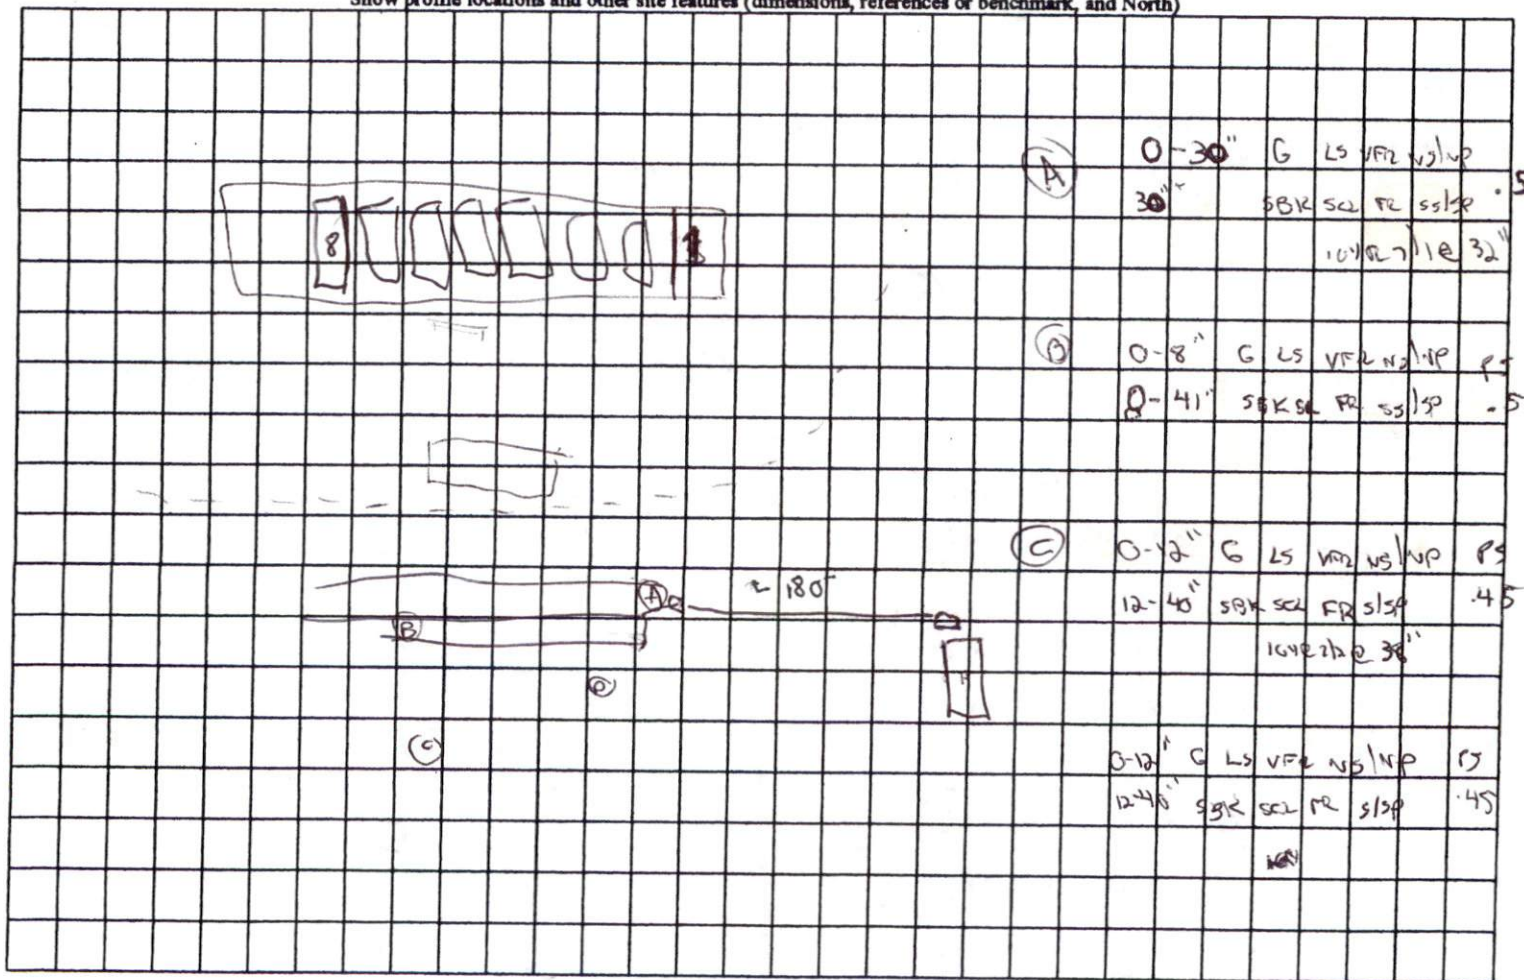 Show profile locations and other site features (dimensions, references or benchmark, and North)
A
0-30" G LS VFR NS/NP
30"+ SBK SCL FR SS/SP .5
10YR 7/1 @ 32"
8
1
B
0-8" G LS VFR NS/NP PS
8-41" SBK SCL FR SS/SP .5
C
0-12" G LS VFR NS/NP PS
12-40" SBK SCL FR S/SP .45
@ 38"
A
~ 180'
B
D
C
0-12" G LS VFR NS/NP PS
12-40" SBK SCL FR S/SP .45